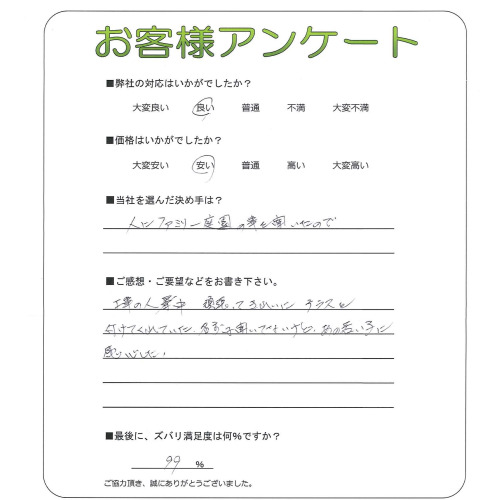 お客様アンケート
■弊社の対応はいかがでしたか？
大変良い 良い 普通 不満 大変不満
■価格はいかがでしたか？
大変安い 安い 普通 高い 大変高い
■当社を選んだ決め手は？
人にファミリー庭園の事を聞いたので
■ご感想・ご要望などをお書き下さい。
工事の人暑中 頑張ってきれいに テラスを
付けてくれていた。名前は聞いてないけど、あの若い子に
感心した。
■最後に、ズバリ満足度は何%ですか？
99 %
ご協力頂き、誠にありがとうございました。